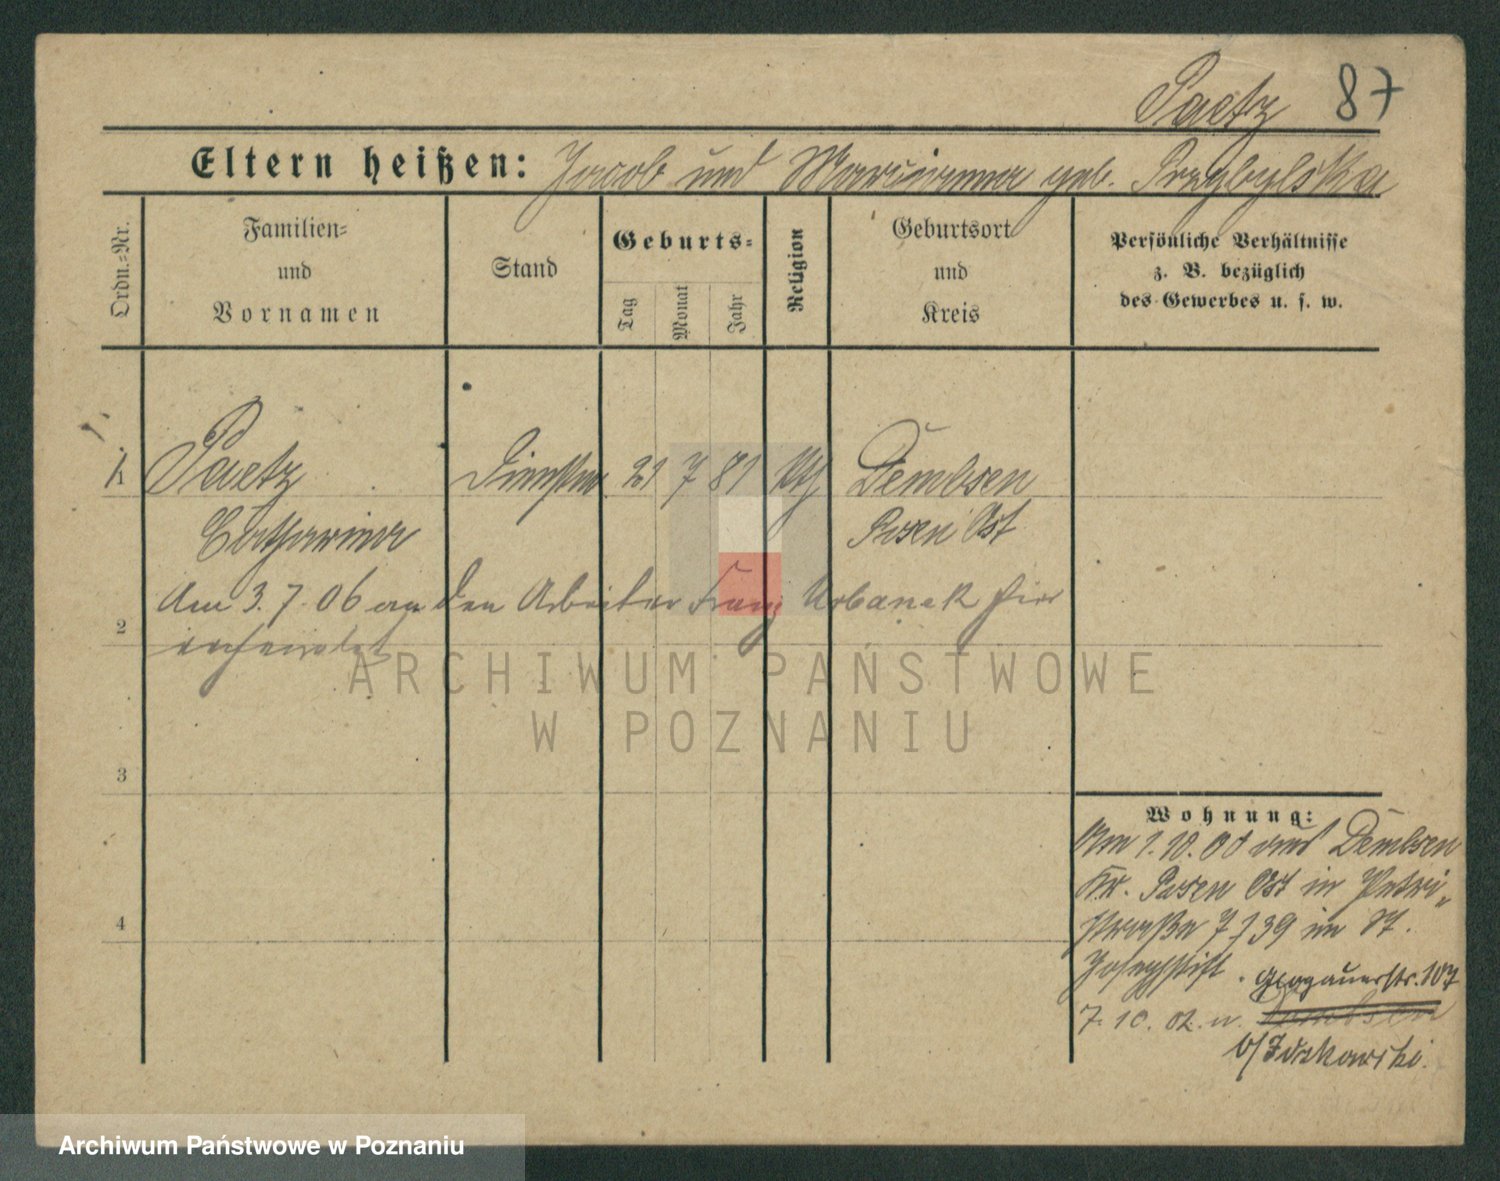 Paetz 87
Eltern heißen: Jacob und Marianna geb. Przybylska
Ordn.-Nr.
Familien-
und
Vornamen
Stand
Geburts-
Tag
Monat
Jahr
Religion
Geburtsort
und
Kreis
Persönliche Verhältnisse
z. B. bezüglich
des Gewerbes u. s. w.
1 Paetz 21 7 81 kth Dembsen
Catharina Posen Ost
Am 3.7.06 an den Arbeiter Franz Urbanek hier
2 verheiratet
3
4
Wohnung:
Am 1.10.00 aus Dembsen
Kr. Posen Ost in Petri-
straße 7 J 39 im St.
Josephstift. Glogauerstr. 107
7.10.02. n. Dembsen
b/
ARCHIWUM PAŃSTWOWE
W POZNANIU
Archiwum Państwowe w Poznaniu